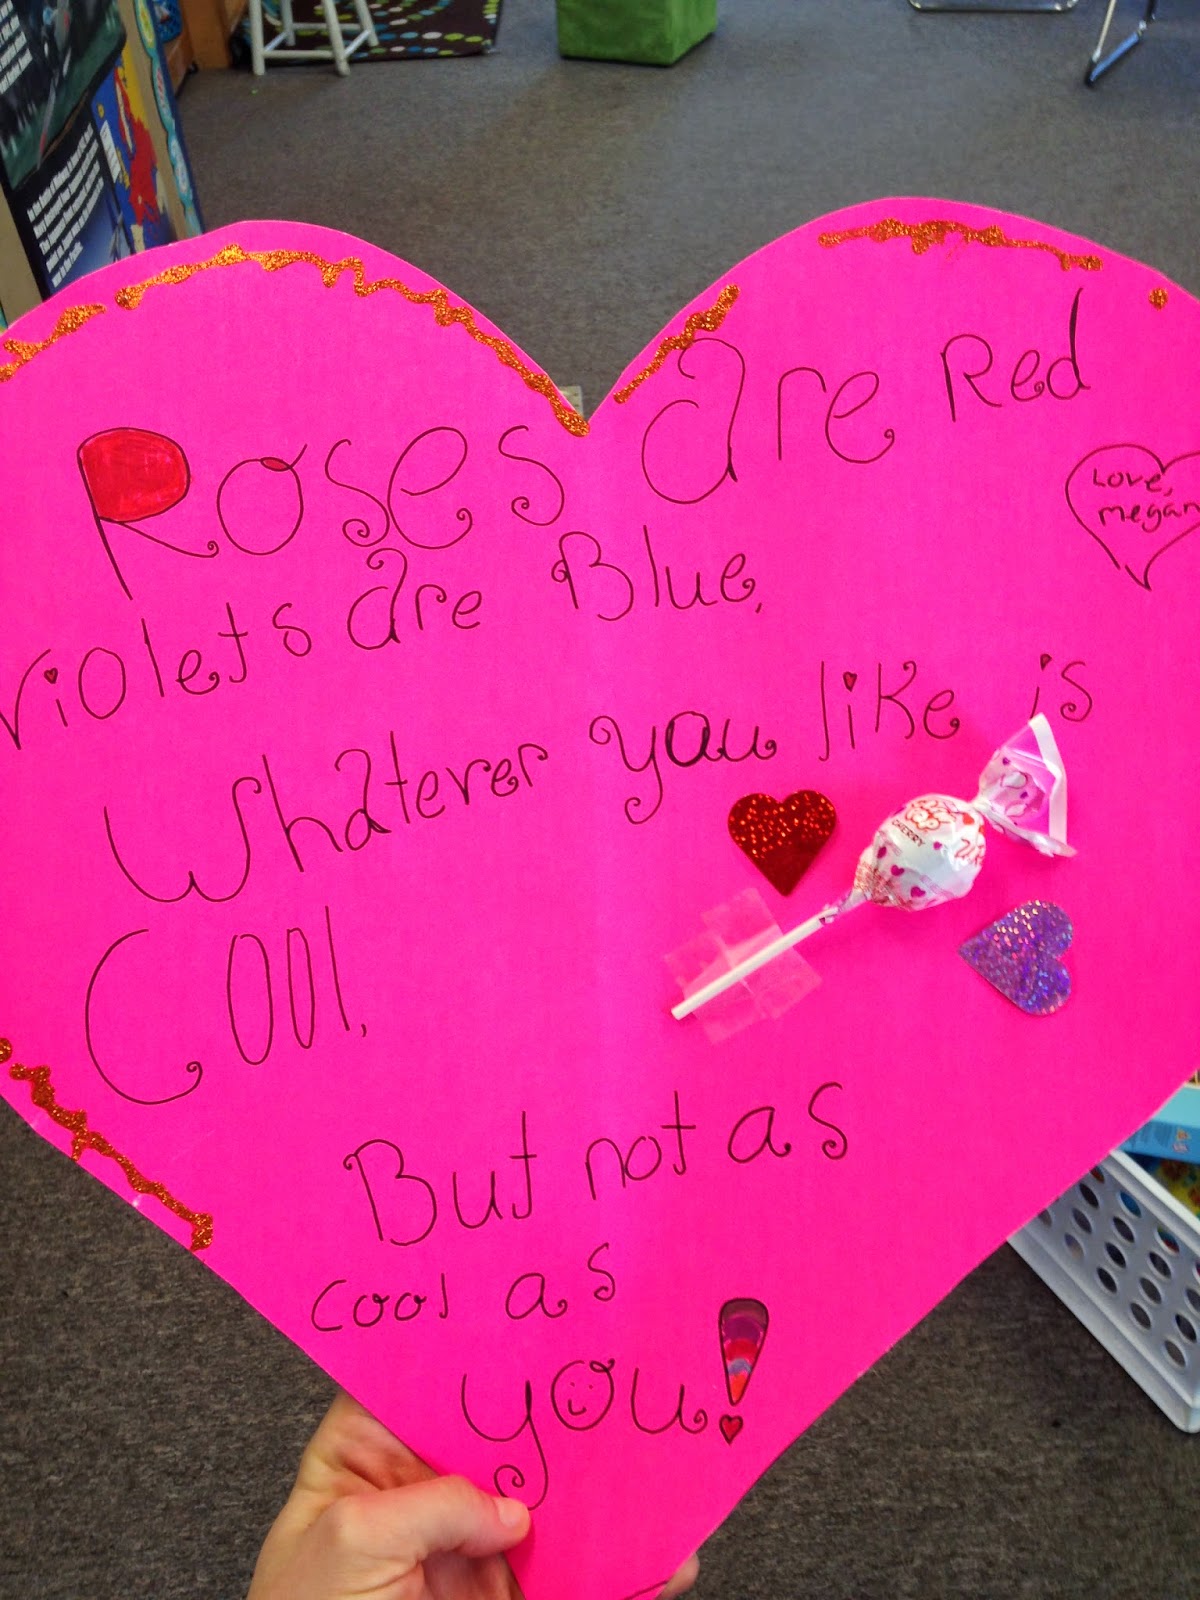 Roses are Red
Love,
megan
violets are Blue,
Whatever you like is
Cool,
CHERRY
But not as
cool as
you!